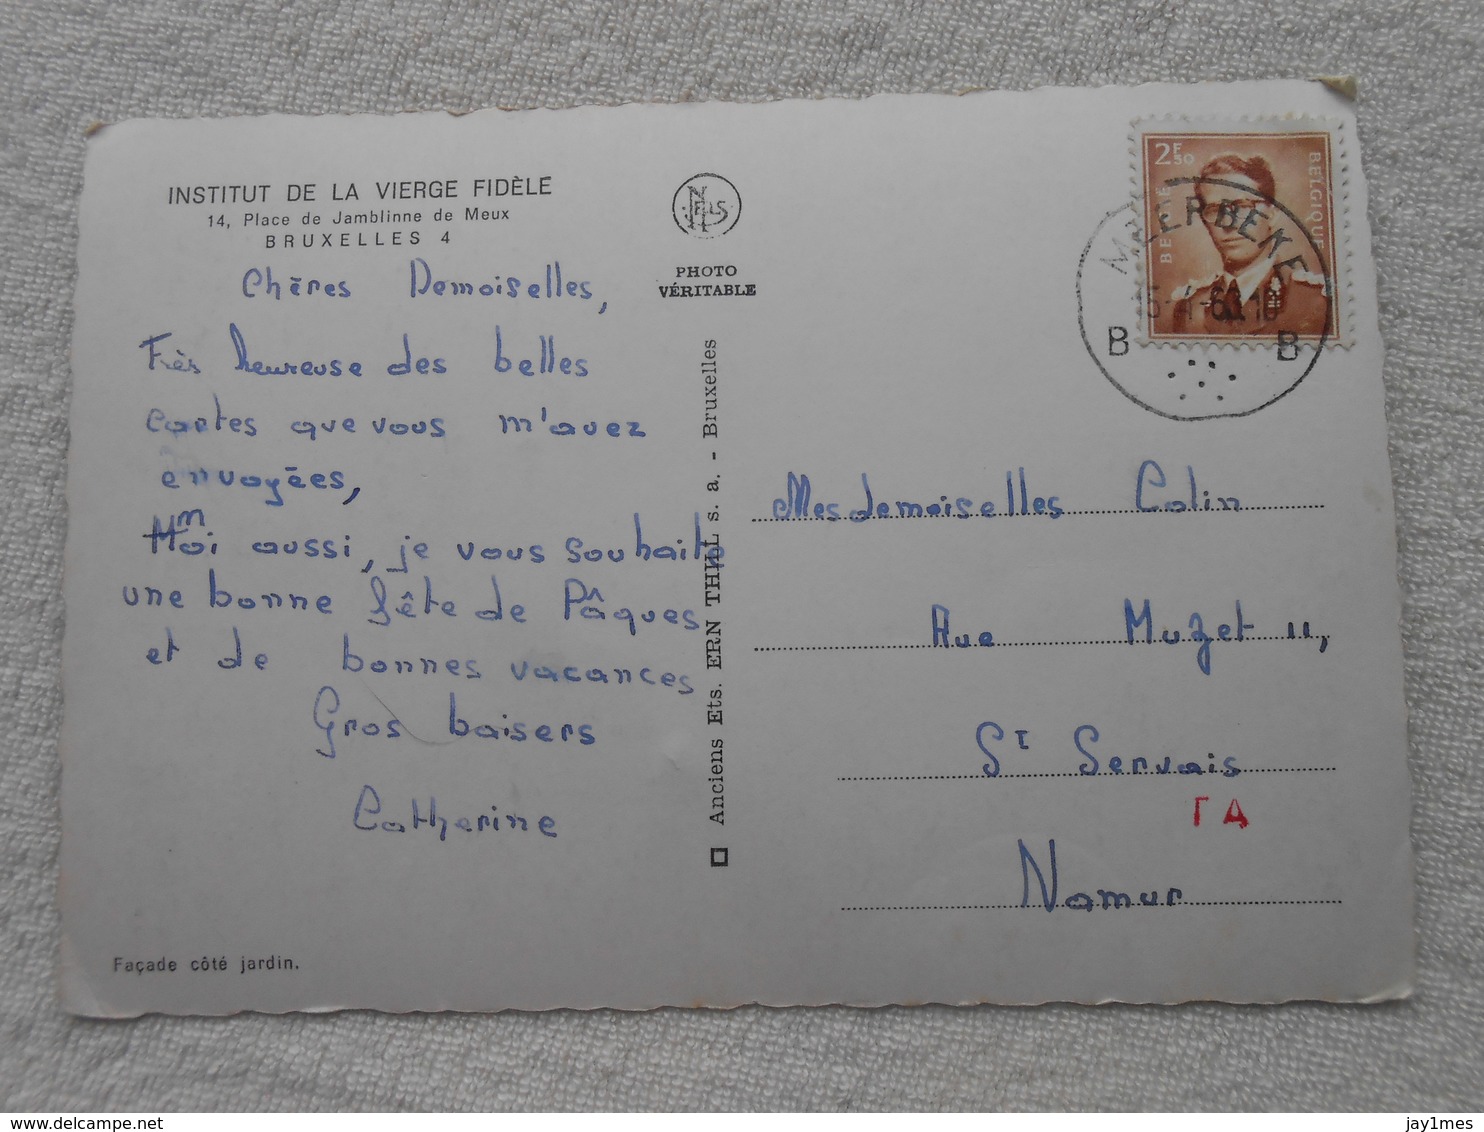 INSTITUT DE LA VIERGE FIDÈLE
14, Place de Jamblinne de Meux
BRUXELLES 4
Chères Demoiselles,
Très heureuse des belles
cartes que vous m'avez
envoyées,
m
Moi aussi, je vous souhaite
une bonne fête de Pâques
et de bonnes vacances
Gros baisers
Catherine
Façade côté jardin.
NELS
PHOTO
VÉRITABLE
Anciens Ets. ERN THILL s. a. - Bruxelles
2F50
BELGIË
BELGIQUE
MEERBEKE
B B
Mesdemoiselles Colin
Rue Muzet 11,
St Servais
T A
Namur
jay1mes